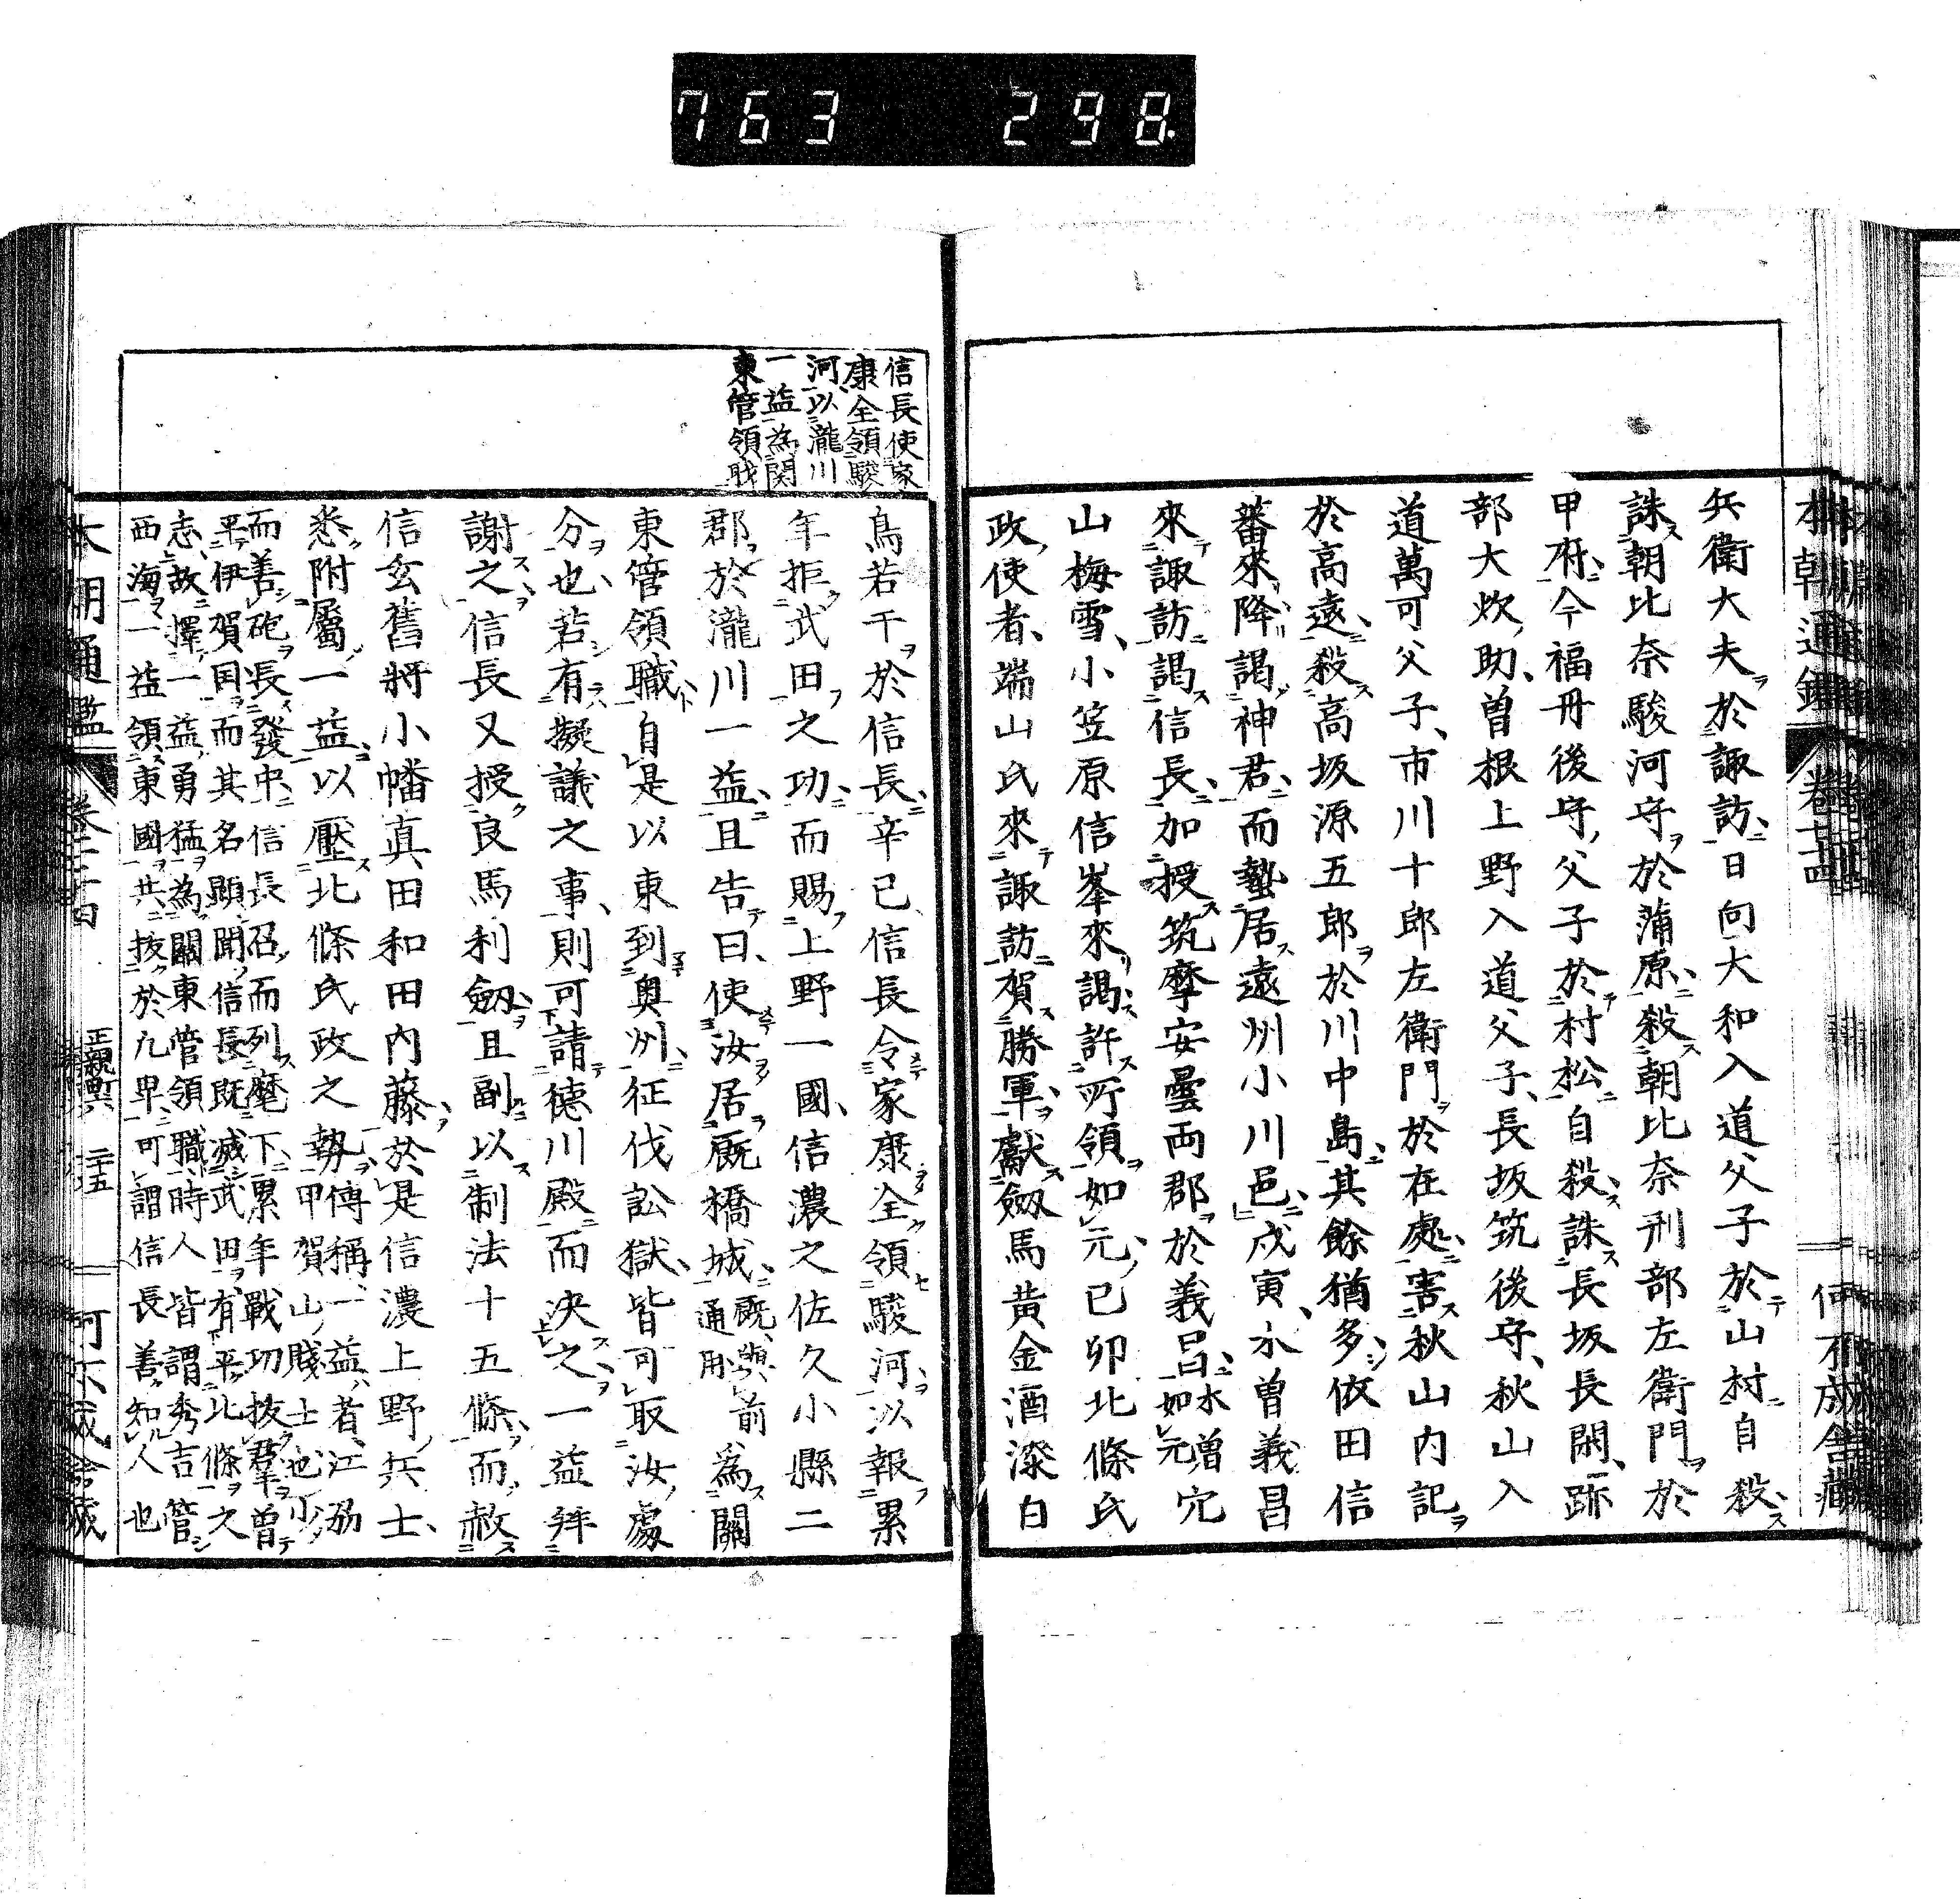 763 298.
本朝通鑑
兵衛大夫於諏訪日向大和入道父子於山村自殺
誅朝比奈駿河守於蒲原殺朝比奈刑部左衛門於
甲府今福丹後守父子於村松自殺誅長坂長閑跡
部大炊助曽根上野入道父子長坂筑後守秋山入
道萬可父子市川十郎左衛門於在處害秋山内記
於高遠殺高坂源五郎於川中島其餘猶多依田信
蕃來降謁神君而蟄居遠州小川邑戊寅木曽義昌
來諏訪謁信長加授筑摩安曇両郡於義昌木曽如元穴
山梅雪小笠原信峯來謁許所領如元己卯北條氏
政使者端山氏來諏訪賀勝軍獻劔馬黄金酒漆白
信長使家
康全領駿
河以瀧川
一益為関
東管領職
鳥若干於信長辛巳信長令家康全領駿河以報累
年拒武田之功而賜上野一國信濃之佐久小縣二
郡於瀧川一益且告曰使汝居厩橋城厩與前通用為關
東管領職自是以東到奥州征伐訟獄皆可取汝處
分也若有擬議之事則可請德川殿而决之一益拜
謝之信長又授良馬利劔且副以制法十五條而赦
信玄舊將小幡真田和田内藤於是信濃上野兵士
悉附屬一益以壓北條氏政之勢傳稱一益者江劦
甲賀山賤士也少
而善砲長發中信長召而列麾下累年戰功抜羣曽
平伊賀国而其名顯聞信長既滅武田有平北條之
志故擇一益勇猛為關東管領職時人皆謂秀吉管
西海一益領東國共抜於凢卑可謂信長善知人也
本朝通鑑
正親町六
二十五